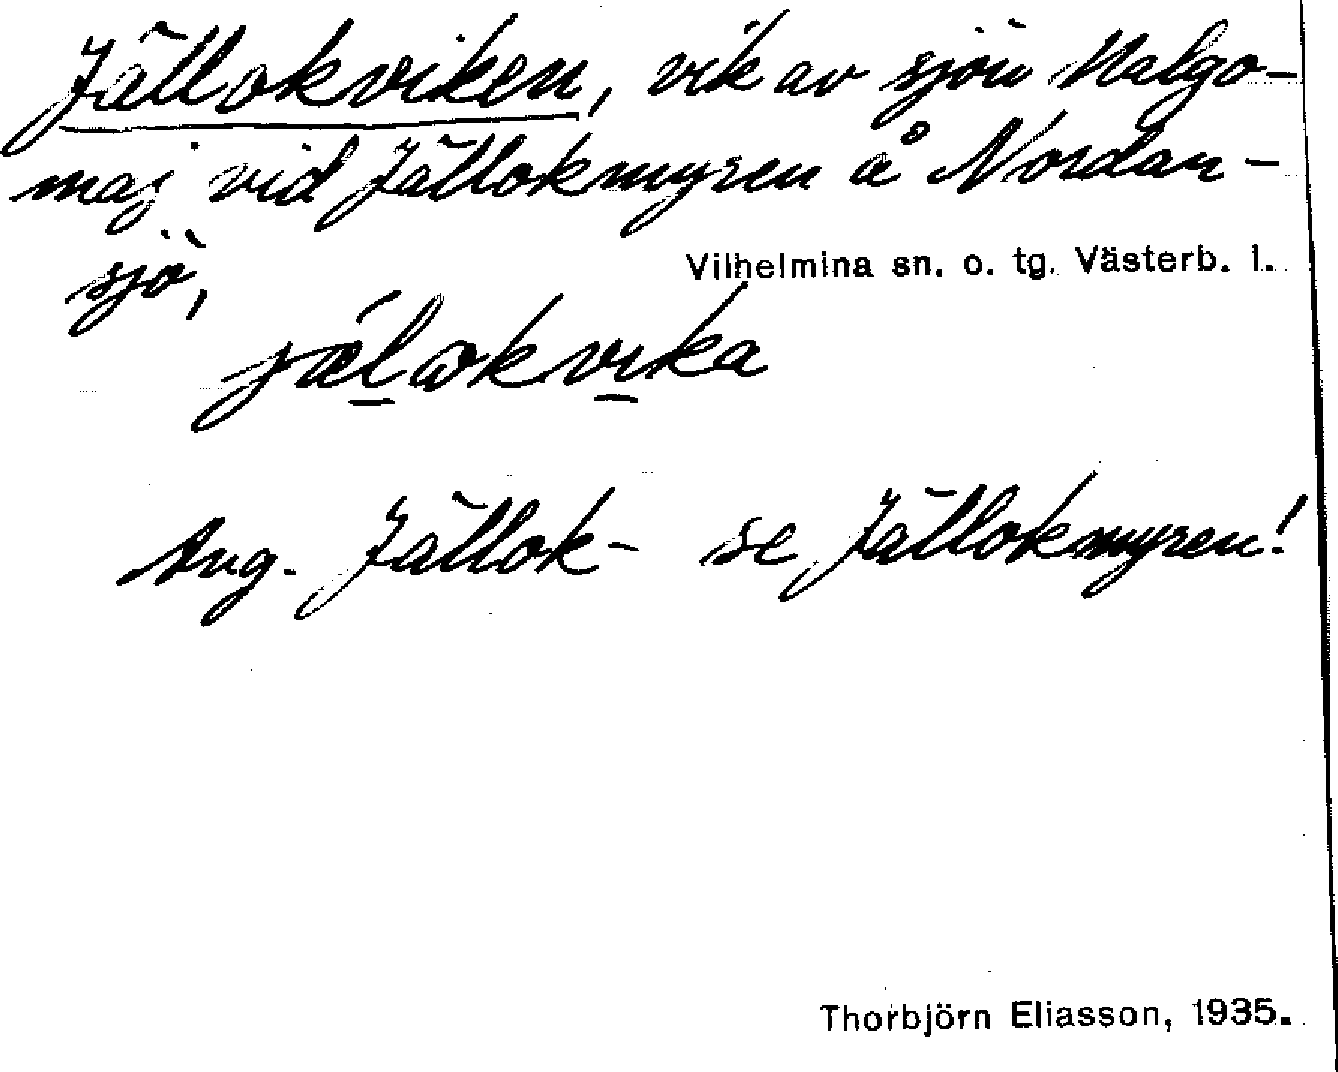 Jällokviken, vik av sjön Malgo-
maj vid Jällokmyren å Nordan-
sjö,
Vilhelmina sn. o. tg. Västerb. l.
jælωkvika
Ang. Jällok- se Jällokmyren!
Thorbjörn Eliasson, 1935.